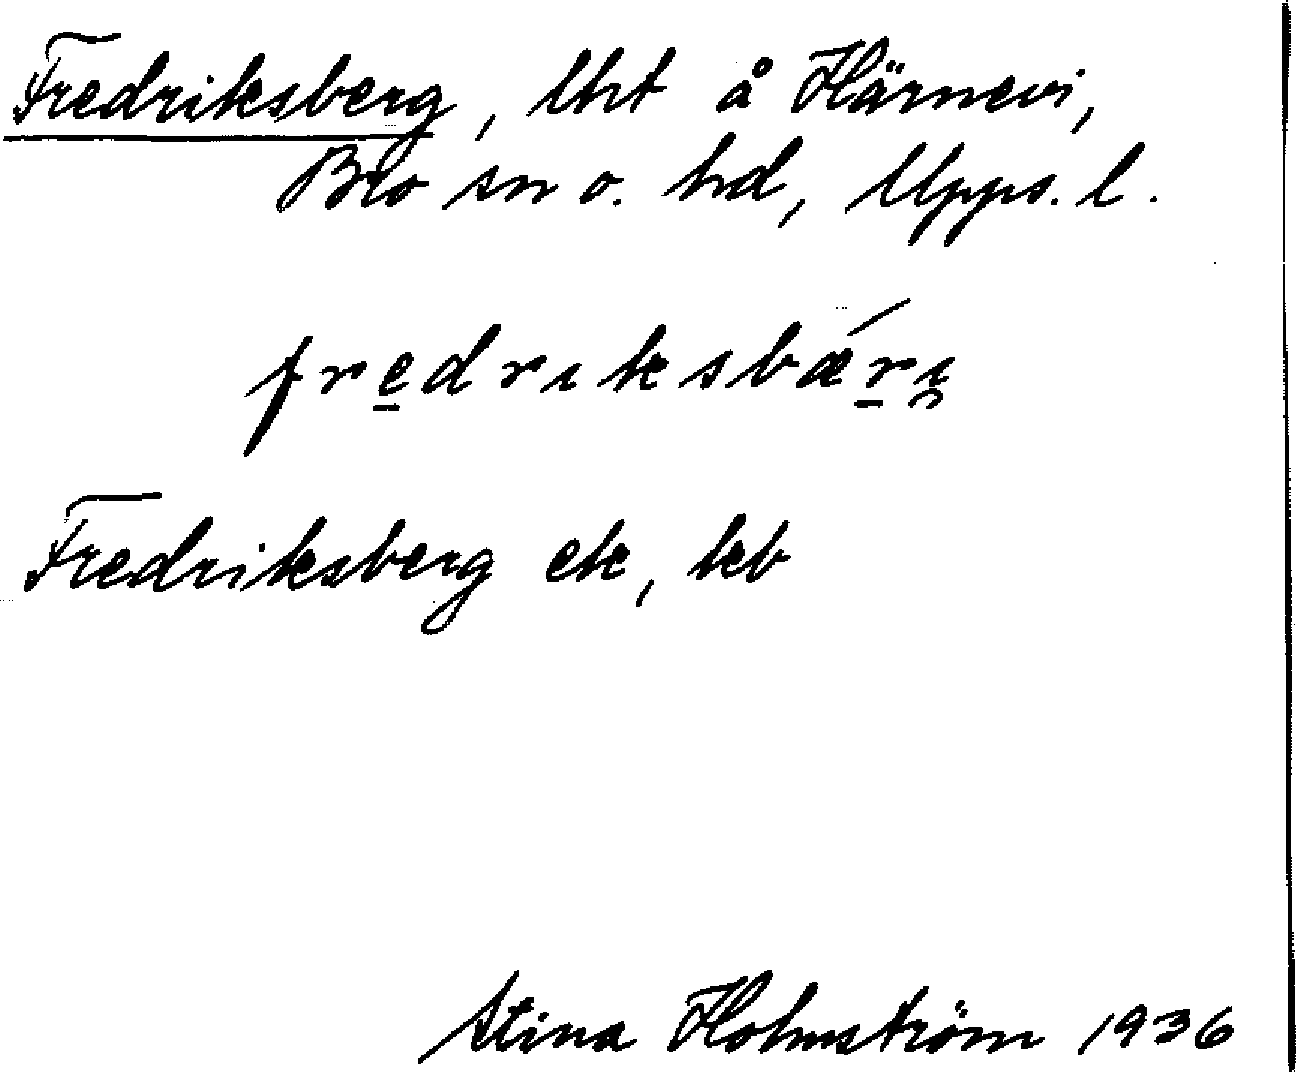 Fredriksberg, lht å Härnevi,
Bro sn o. hd, Upps. l.
fredrıksbǽrı̯
Fredriksberg ek, kb
Stina Holmström 1936